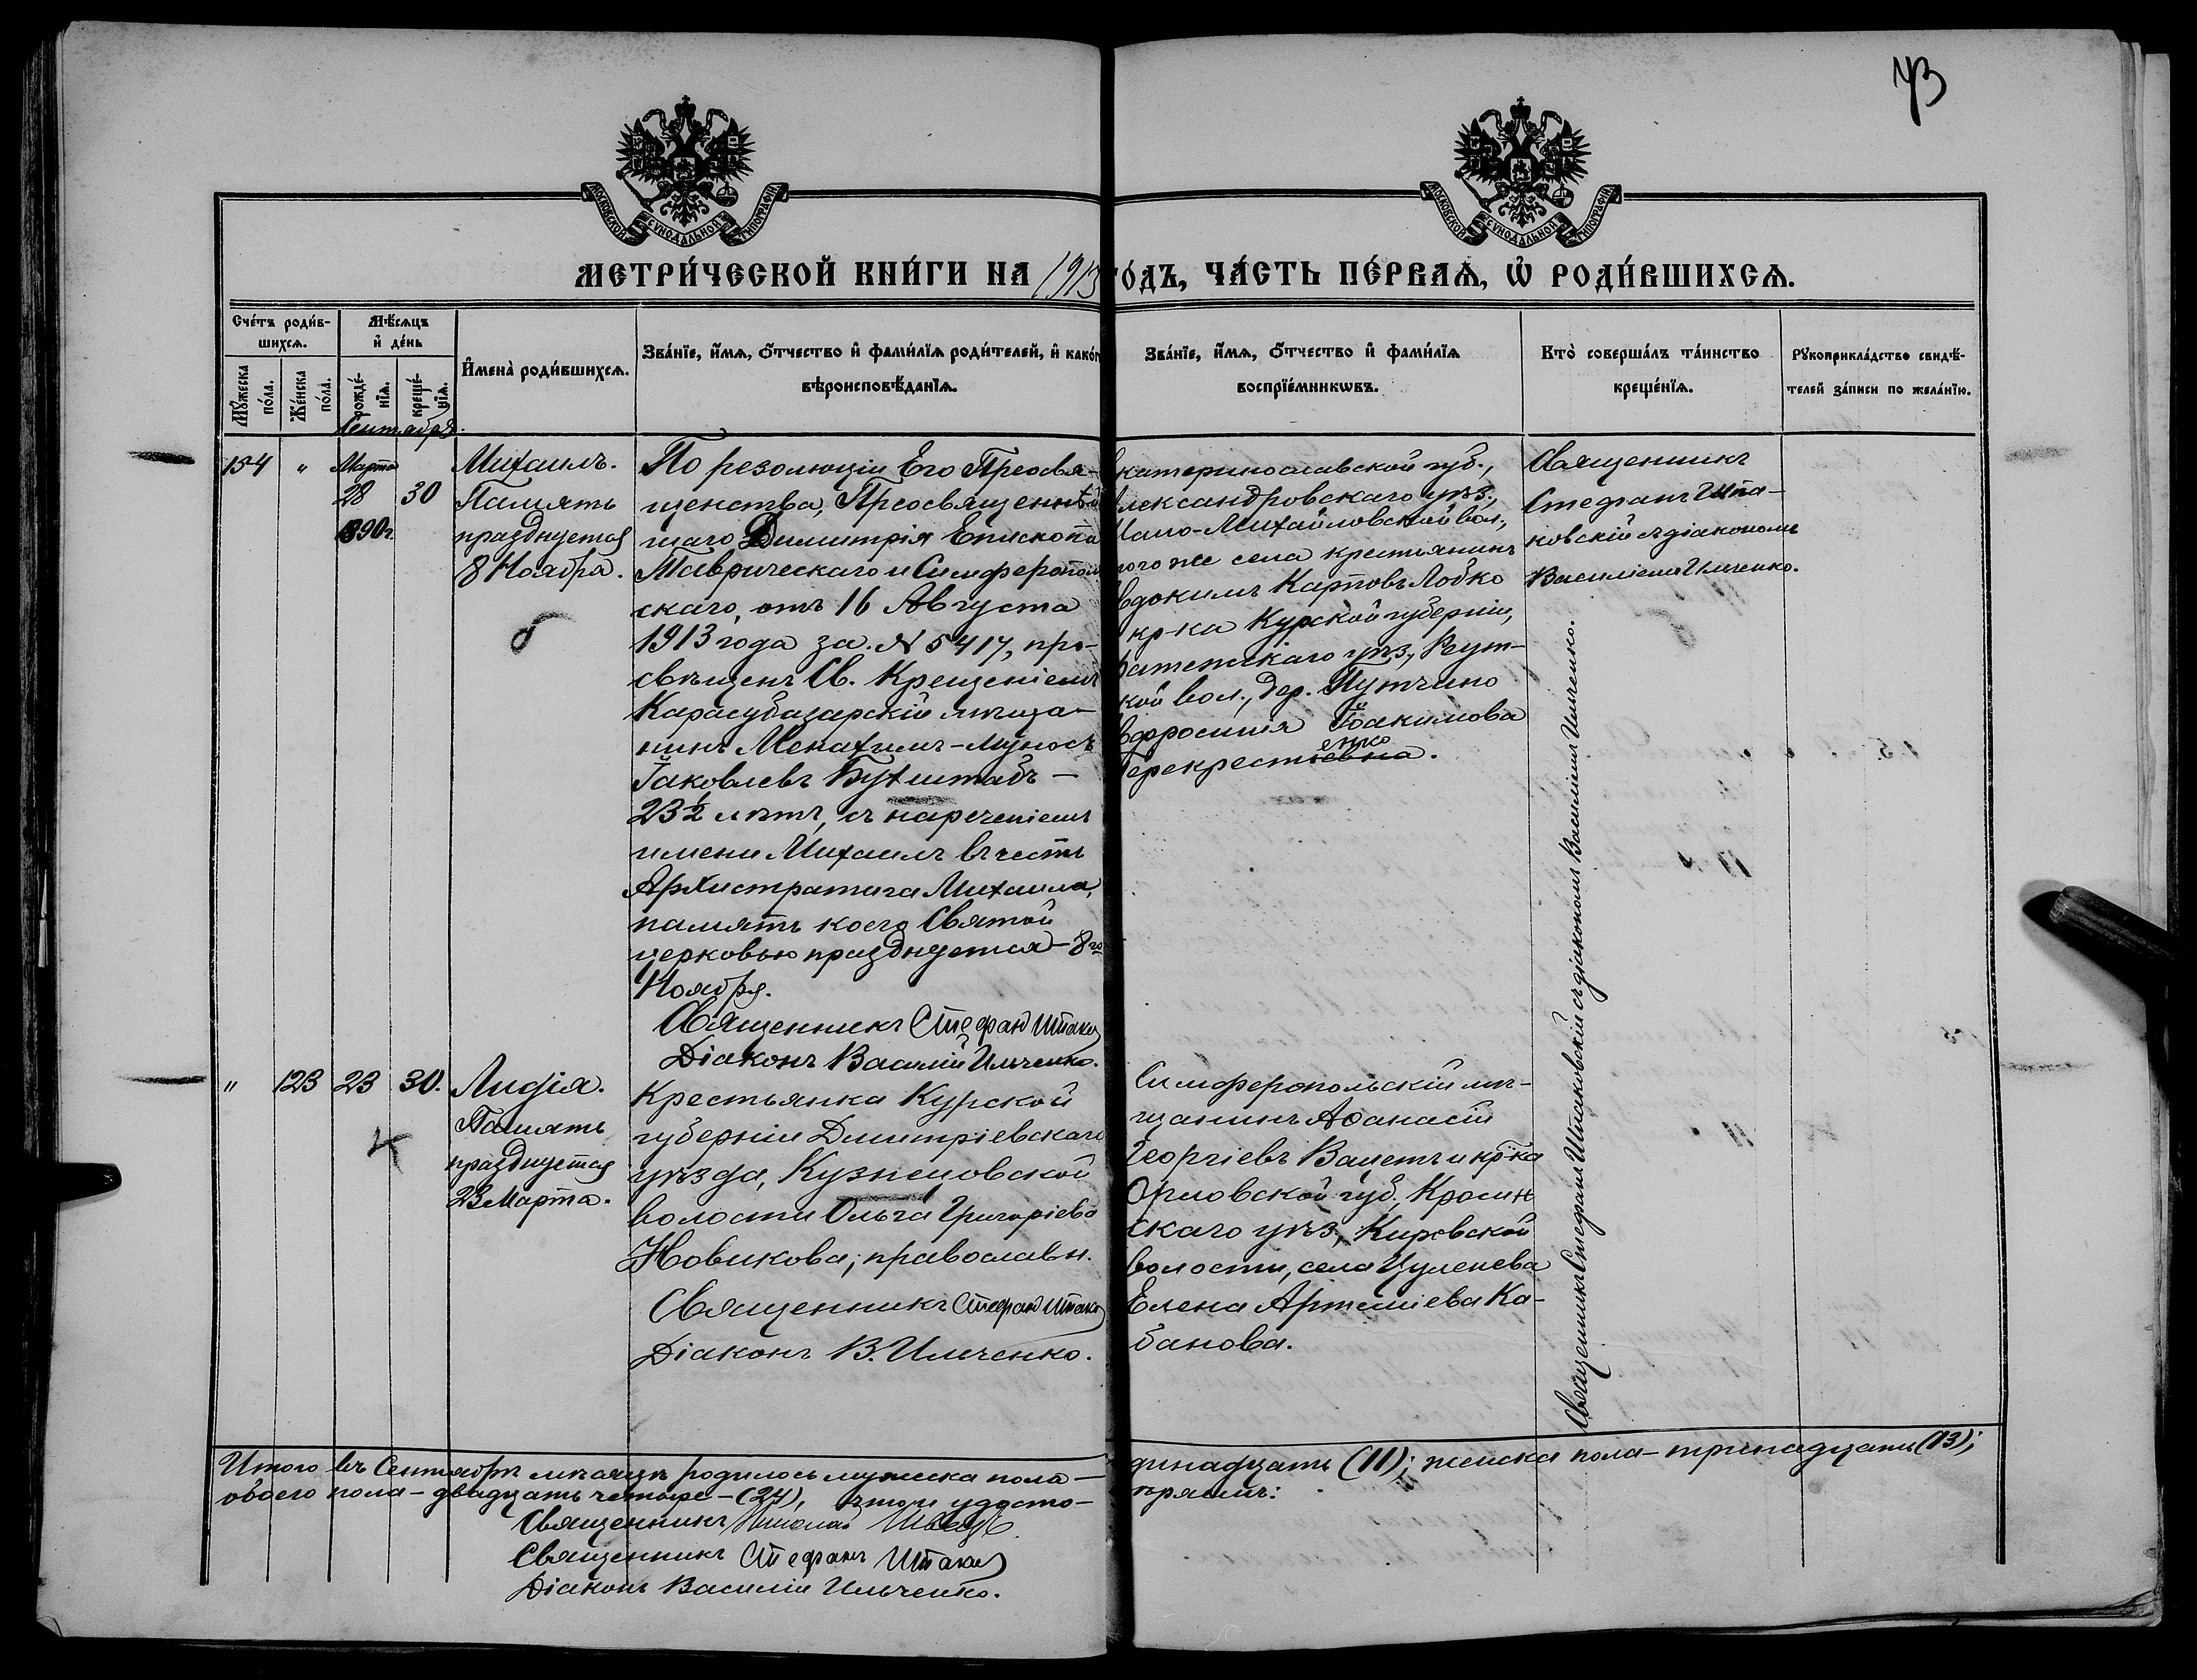 73
МОСКОВСКОЙ СѴНОДАЛЬНОЙ ТИПОГРАФІИ
МОСКОВСКОЙ СѴНОДАЛЬНОЙ ТИПОГРАФІИ
МЕТРИ́ЧЕСКОЙ КНИ́ГИ НА 1913
ГО́ДЪ, ЧА́СТЬ ПЕ́РВАѦ, Ѽ РОДИ́ВШИХСѦ.
Сче́тъ роди́в-
шихсѧ.
Мѣ́сѧцъ
и҆ де́нь
И҆мена̀ роди́вшихсѧ.
Зва́нїе, и҆́мѧ, ѻ҆́тчество и҆ фами́лїѧ роди́телей, и҆ како́г
вѣроисповѣ́данїѧ.
Зва́нїе, и҆́мѧ, ѻ҆́тчество и҆ фами́лїѧ
воспрїе́мникѡвъ.
Кто̀ соверша́лъ та́инство
креще́нїѧ.
Рꙋкоприкла́дство свидѣ́-
телей за́писи по жела́нїю.
Мꙋ́жеска
по́ла.
Же́нска
по́ла.
рожде́-
нїѧ.
креще́-
нїѧ.
Сентябрь.
154 " Марта
28 30
1890г.
Михаилъ.
Память
празднуется
8 Ноября.
По резолюціи Его Преосвя-
щенства, Преосвященнѣй
шаго Димитрія Епископа
Таврическаго и Симферополь
скаго, отъ 16 Августа
1913 года за № 5417, про-
свѣщенъ Св. Крещеніемъ
Карасубазарскій мѣща-
нинъ Менахимъ-Муносъ
Іаковлевъ Бухштабъ —
23½ лѣтъ, съ нареченіемъ
имени Михаилъ въ честь
Архистратига Михаила,
память коего Святой
церковью празднуется — 8го
Ноября.
Священникъ Стефан Штак
Діаконъ Василій Ильченко.
катеринославской губ.,
лександровскаго уѣз.,
Михайловской вол.,
того же села крестьянинъ
вдокимъ Карповъ Лобко
кр-ка Курской губерніи,
уѣз.,
кой вол., дер.
вфросинія Іоакимова
ерекрестьевна.
енко
Священникъ
Стефанъ Шта-
ковскій съ діакономъ
Василіемъ Ильченко.
Священникъ Стефанъ Штаковскій съ діакономъ Василіемъ Ильченко.
" 123 23 30.
Лидія.
Память
празднуется
23 Марта.
Крестьянка Курской
губерніи Дмитріевскаго
уѣзда, Кузнецовской
волости Ольга Григоріева
Новикова; православн.
Священникъ Стефан Штак
Діаконъ В. Ильченко.
Симферопольскій мѣ-
щанинъ Аѳанасій
Георгіевъ Валетъ и кр-ка
Орловской губ., Кромин
скаго уѣз., Кировской
волости, села
Елена Артеміева Ка-
банова.
Итого въ Сентябрѣ мѣсяцѣ родилось мужеска пола —
динадцать (11); женска пола — тринадцать (13);
обоего пола — двадцать четыре — (24), въ чемъ удосто-
вѣряемъ:
Священникъ Николай Швецъ
Священникъ Стефанъ Штак
Діаконъ Василій Ильченко.